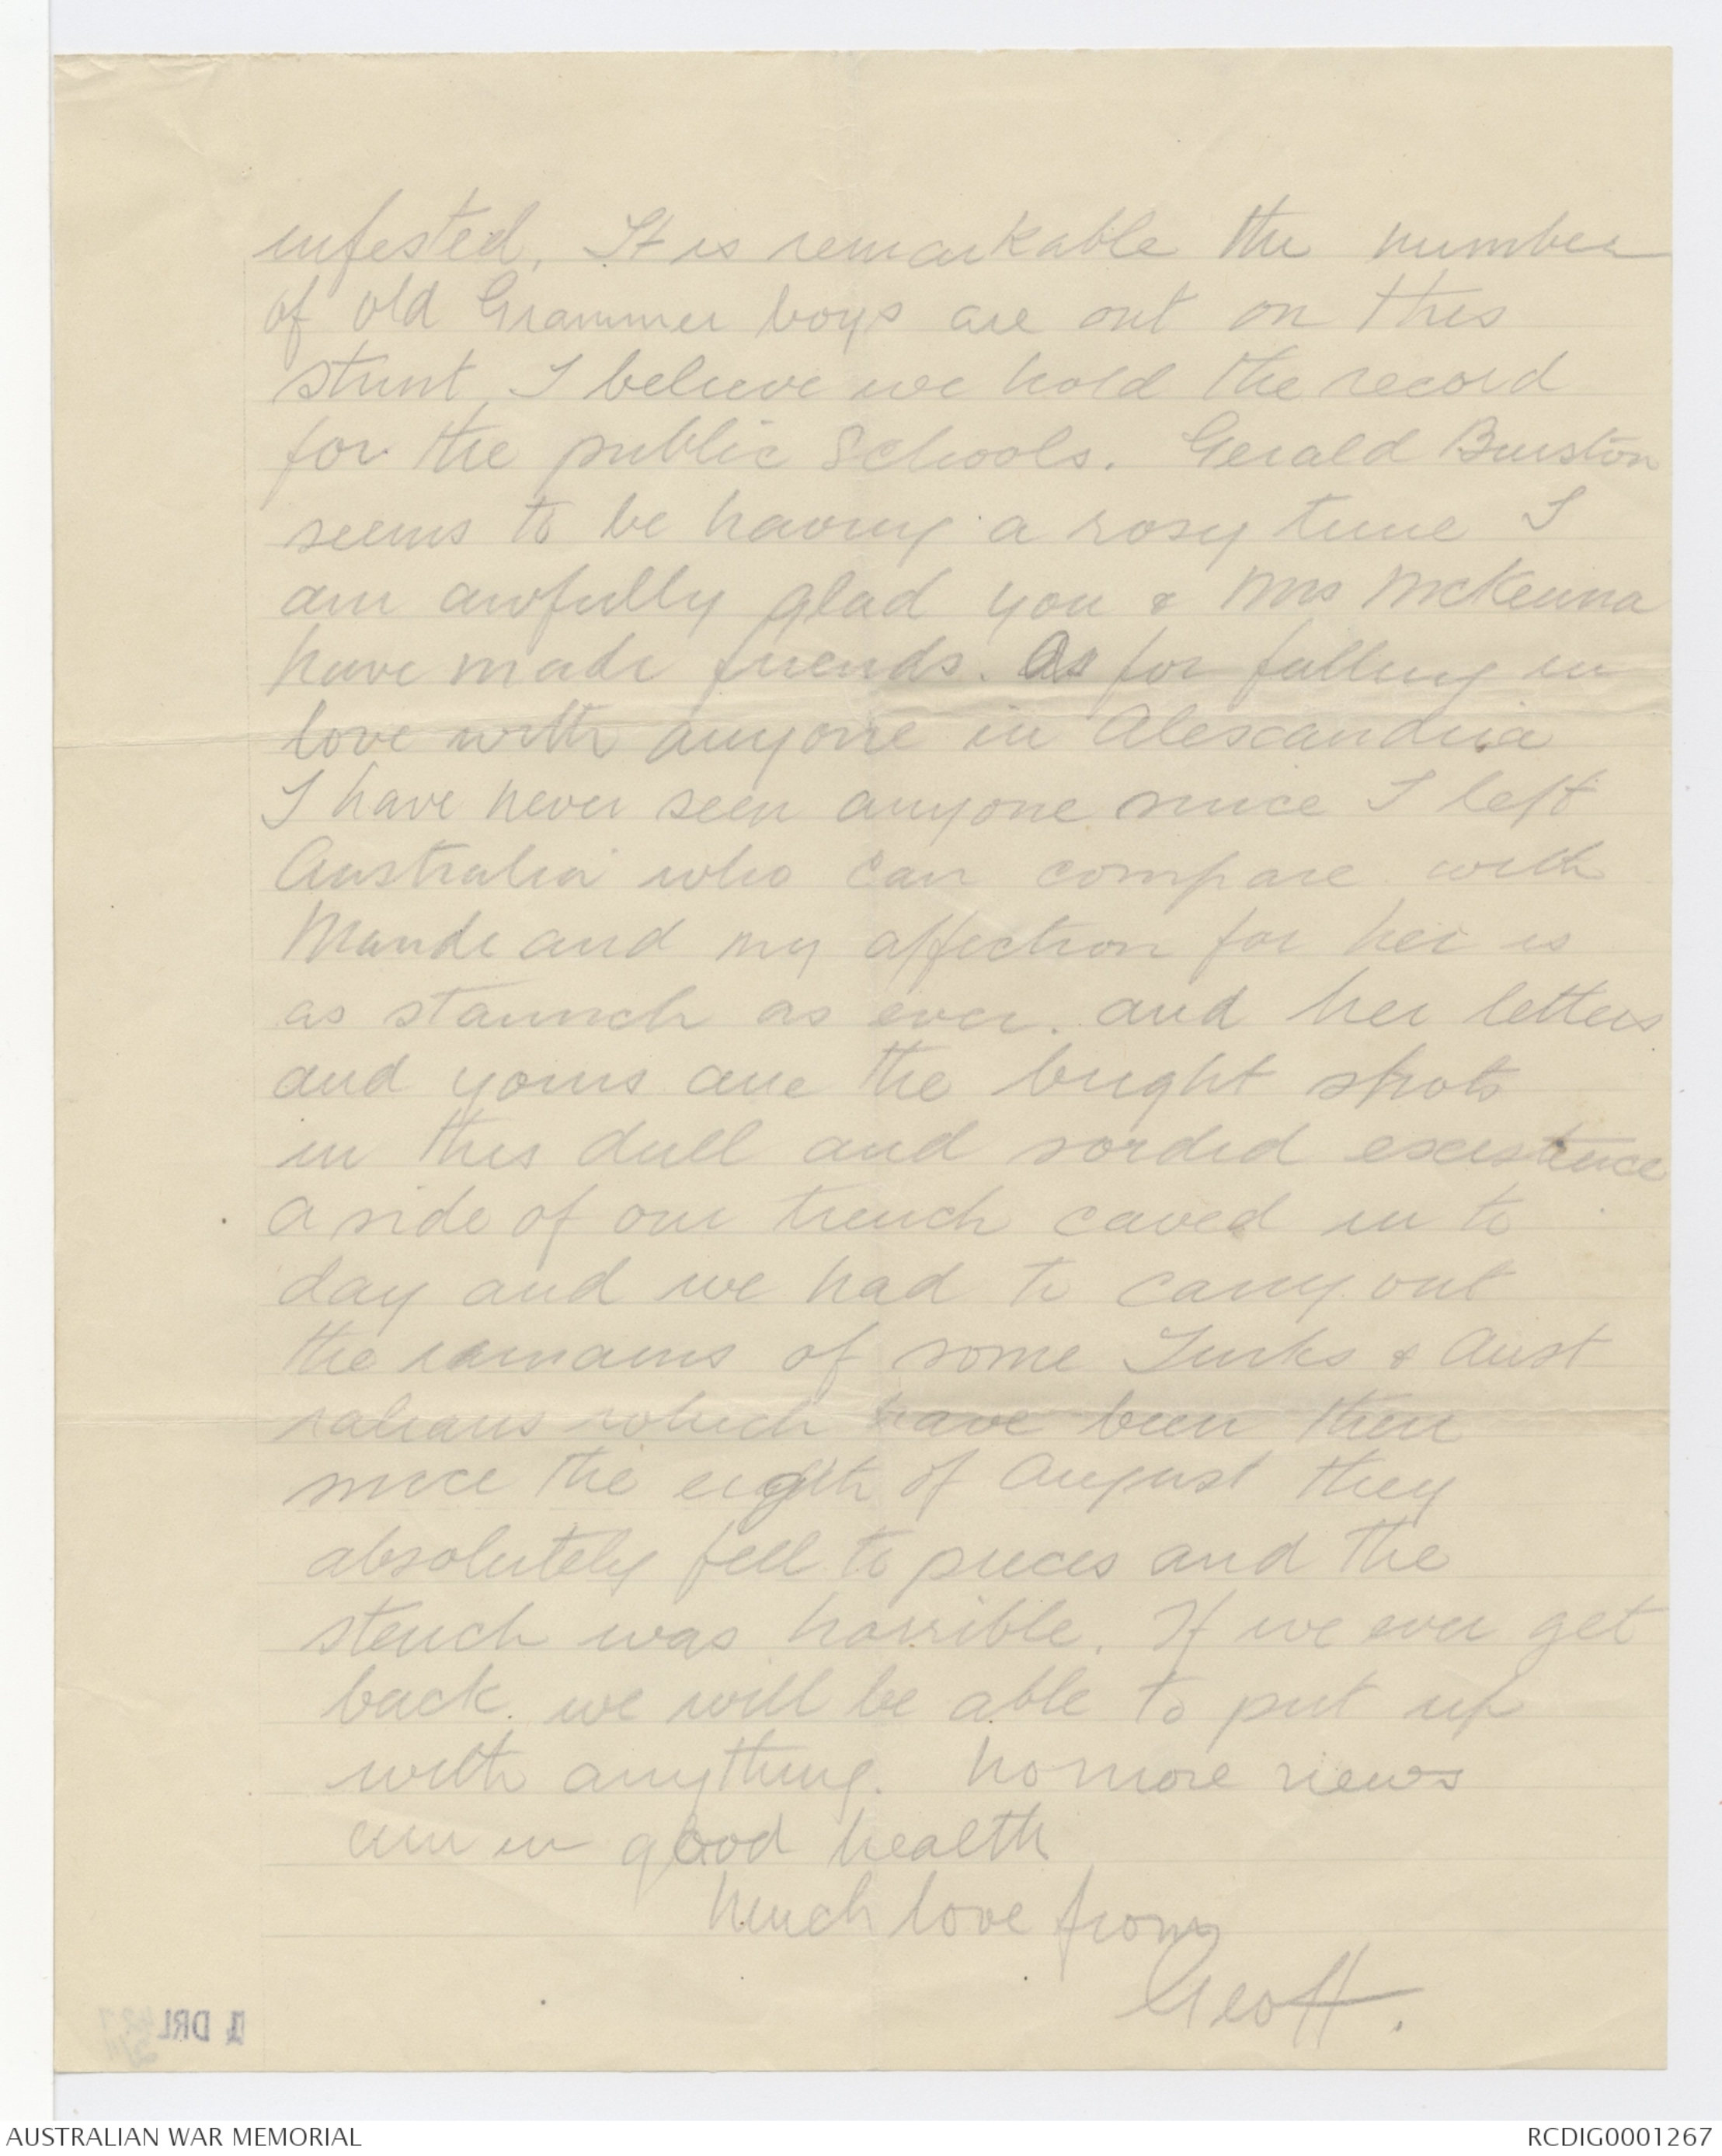 infested. It is remarkable the number
of old Grammer boys are out on this
stunt, I believe we hold the record
for the public Schools. Gerald Burston
seems to be having a rosy time I
am awfully glad you & Mrs McKenna
have made friends. As for falling in
love with anyone in Alexcandria
I have never seen anyone since I left
Australia who can compare with
Maude and my affection for her is
as staunch as ever. and her letters
and yours are the bright spots
in this dull and sordid excistence
A side of our trench caved in to
day and we had to carry out
the remains of some Turks & Aust
ralians which have been there
since the eigth of August they
absolutely fell to pieces and the
stench was horrible. If we ever get
back. we will be able to put up
with anything. No more news
am in good health
Much love from
Geoff.
1 DRL
AUSTRALIAN WAR MEMORIAL
RCDIG0001267